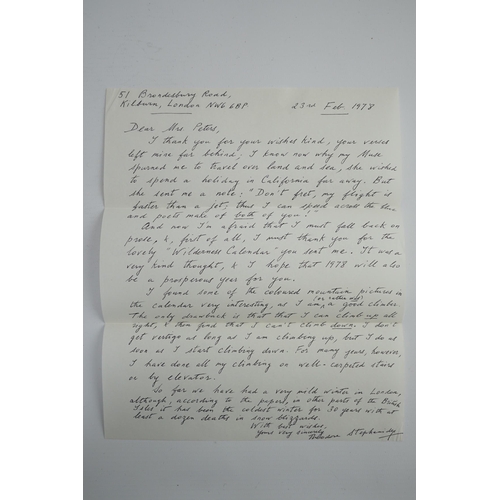 51 Brondesbury Road,
Kilburn, London NW6 6BP. 23rd Feb. 1978
Dear Mrs Peters,
I thank you for your wishes kind, your verses
left mine far behind; I know now why my Muse
spurned me to travel over land and sea, she wished
to spend a holiday in California far away. But
she sent me a note: "Don't fret, my flight is
faster than a jet, thus I can speed across the blue
and poets make of both of you!"
And now I'm afraid that I must fall back on
prose, &, first of all, I must thank you for the
lovely "Wilderness Calendar" you sent me. It was a
very kind thought, & I hope that 1978 will also
be a prosperous year for you.
I found some of the coloured mountain pictures in
the calendar very interesting, as I am (or rather was) a good climber.
The only drawback is that that I can climb up all
right, & then find that I can't climb down. I don't
get vertigo as long as I am climbing up, but I do as
soon as I start climbing down. For many years, however,
I have done all my climbing on well-carpeted stairs
or by elevator.
So far we have had a very mild winter in London,
although, according to the papers, in other parts of the British
Isles it has been the coldest winter for 30 years with at
least a dozen deaths in snow blizzards.
With best wishes,
Yours very sincerely,
Theodore Stephanides